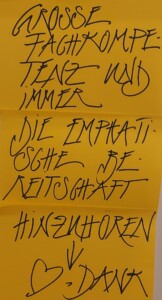 GROSSE
FACHKOMPE-
TENZ UND
IMMER
DIE EMPHATI-
SCHE BE-
REITSCHAFT
HINZUHÖREN
DANK